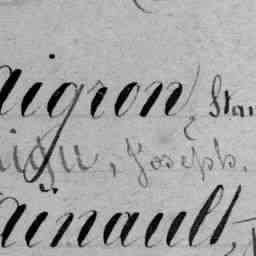 aigron, Stan
aigu, Joseph.
aïnault,